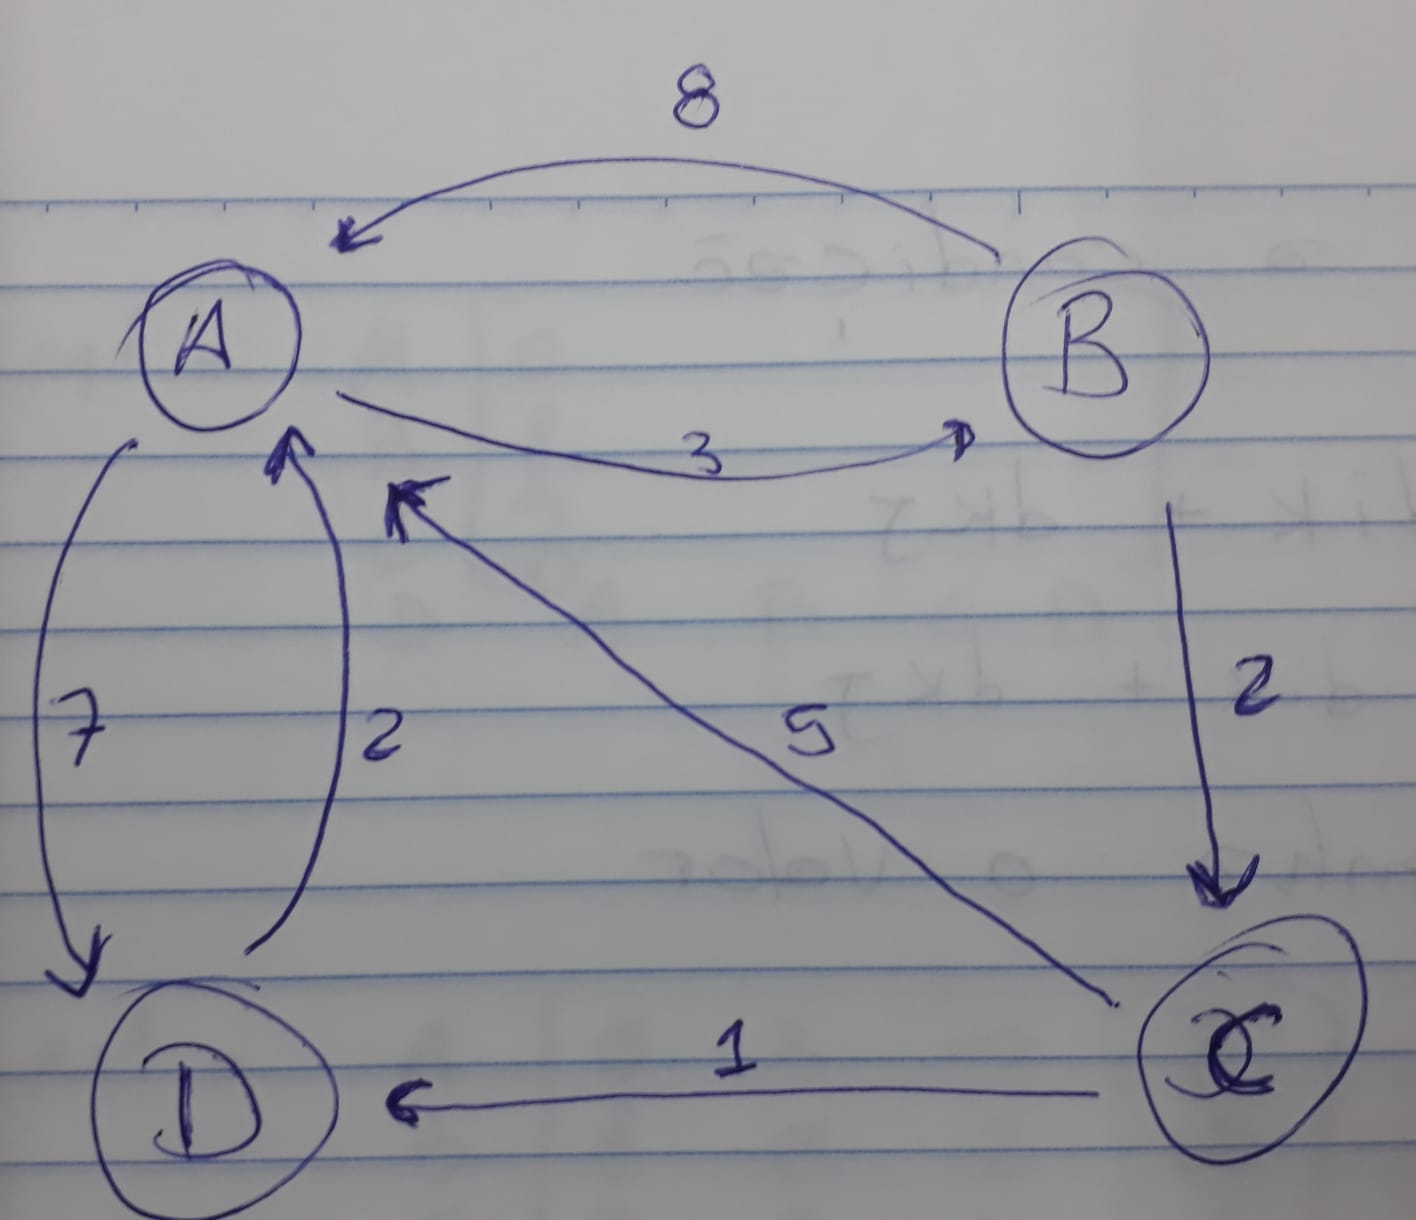 8
A
B
3
7
2
5
2
1
D
C